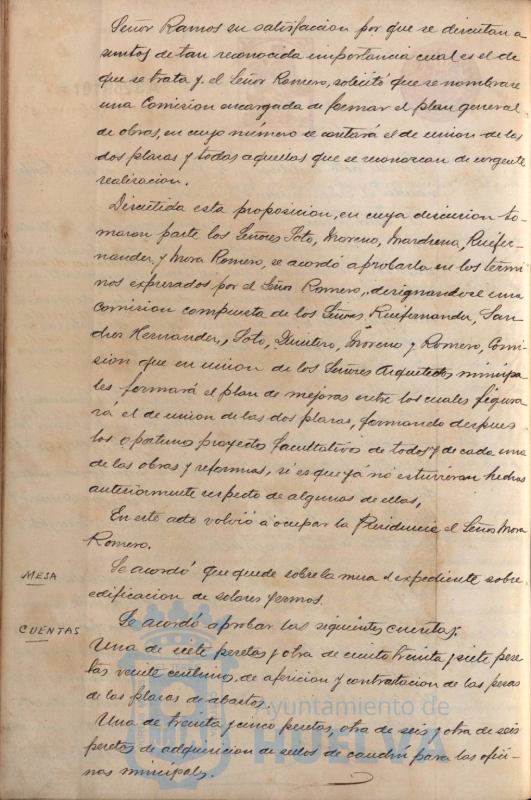 Señor Ramos su satisfaccion por que se discutan a
suntos de tan reconocida importancia cual es el de
que se trata y el Señor Romero, solicitó que se nombrase
una Comision encargada de formar el plan general
de obras, en cuyo número se contará el de union de las
dos plazas y todas aquellas que se reconozcan de urgente
realizacion.
Discutida esta proposicion, en cuya discusion to-
maron parte los Señores Soto, Moreno, Marchena, Ruifer-
nandez y Mora Romero, se acordó aprobarla en los térmi
nos expresados por el Señor Romero, designandose una
comision compuesta de los Señores Ruifernandez, San-
chez Hernandez, Soto, Quintero, Moreno y Romero, Comi
sion que en union de los Señores Arquitectos municipa
les formará el plan de mejoras entre los cuales figura
rá el de union de las dos plazas, formando despues
los oportunos proyectos facultativos de todos y de cada una
de las obras y reformas, si es que ya no estuvieran hechas
anteriormente respecto de algunas de ellas,
En este acto volvió a ocupar la Presidencia el Señor Mora
Romero.
MESA
Se acordó que quede sobre la mesa el expediente sobre
edificacion de solares yermos.
CUENTAS
Se acordó aprobar las siguientes cuentas:
Una de siete pesetas y otra de ciento treinta y siete pese
tas veinte centimos, de afericion y contrastacion de las pesas
de las plazas de abastos.
Una de treinta y cinco pesetas, otra de seis y otra de seis
pesetas de adquisicion de sellos de cauchú para las ofici-
nas municipales.
Ayuntamiento de
HUELVA